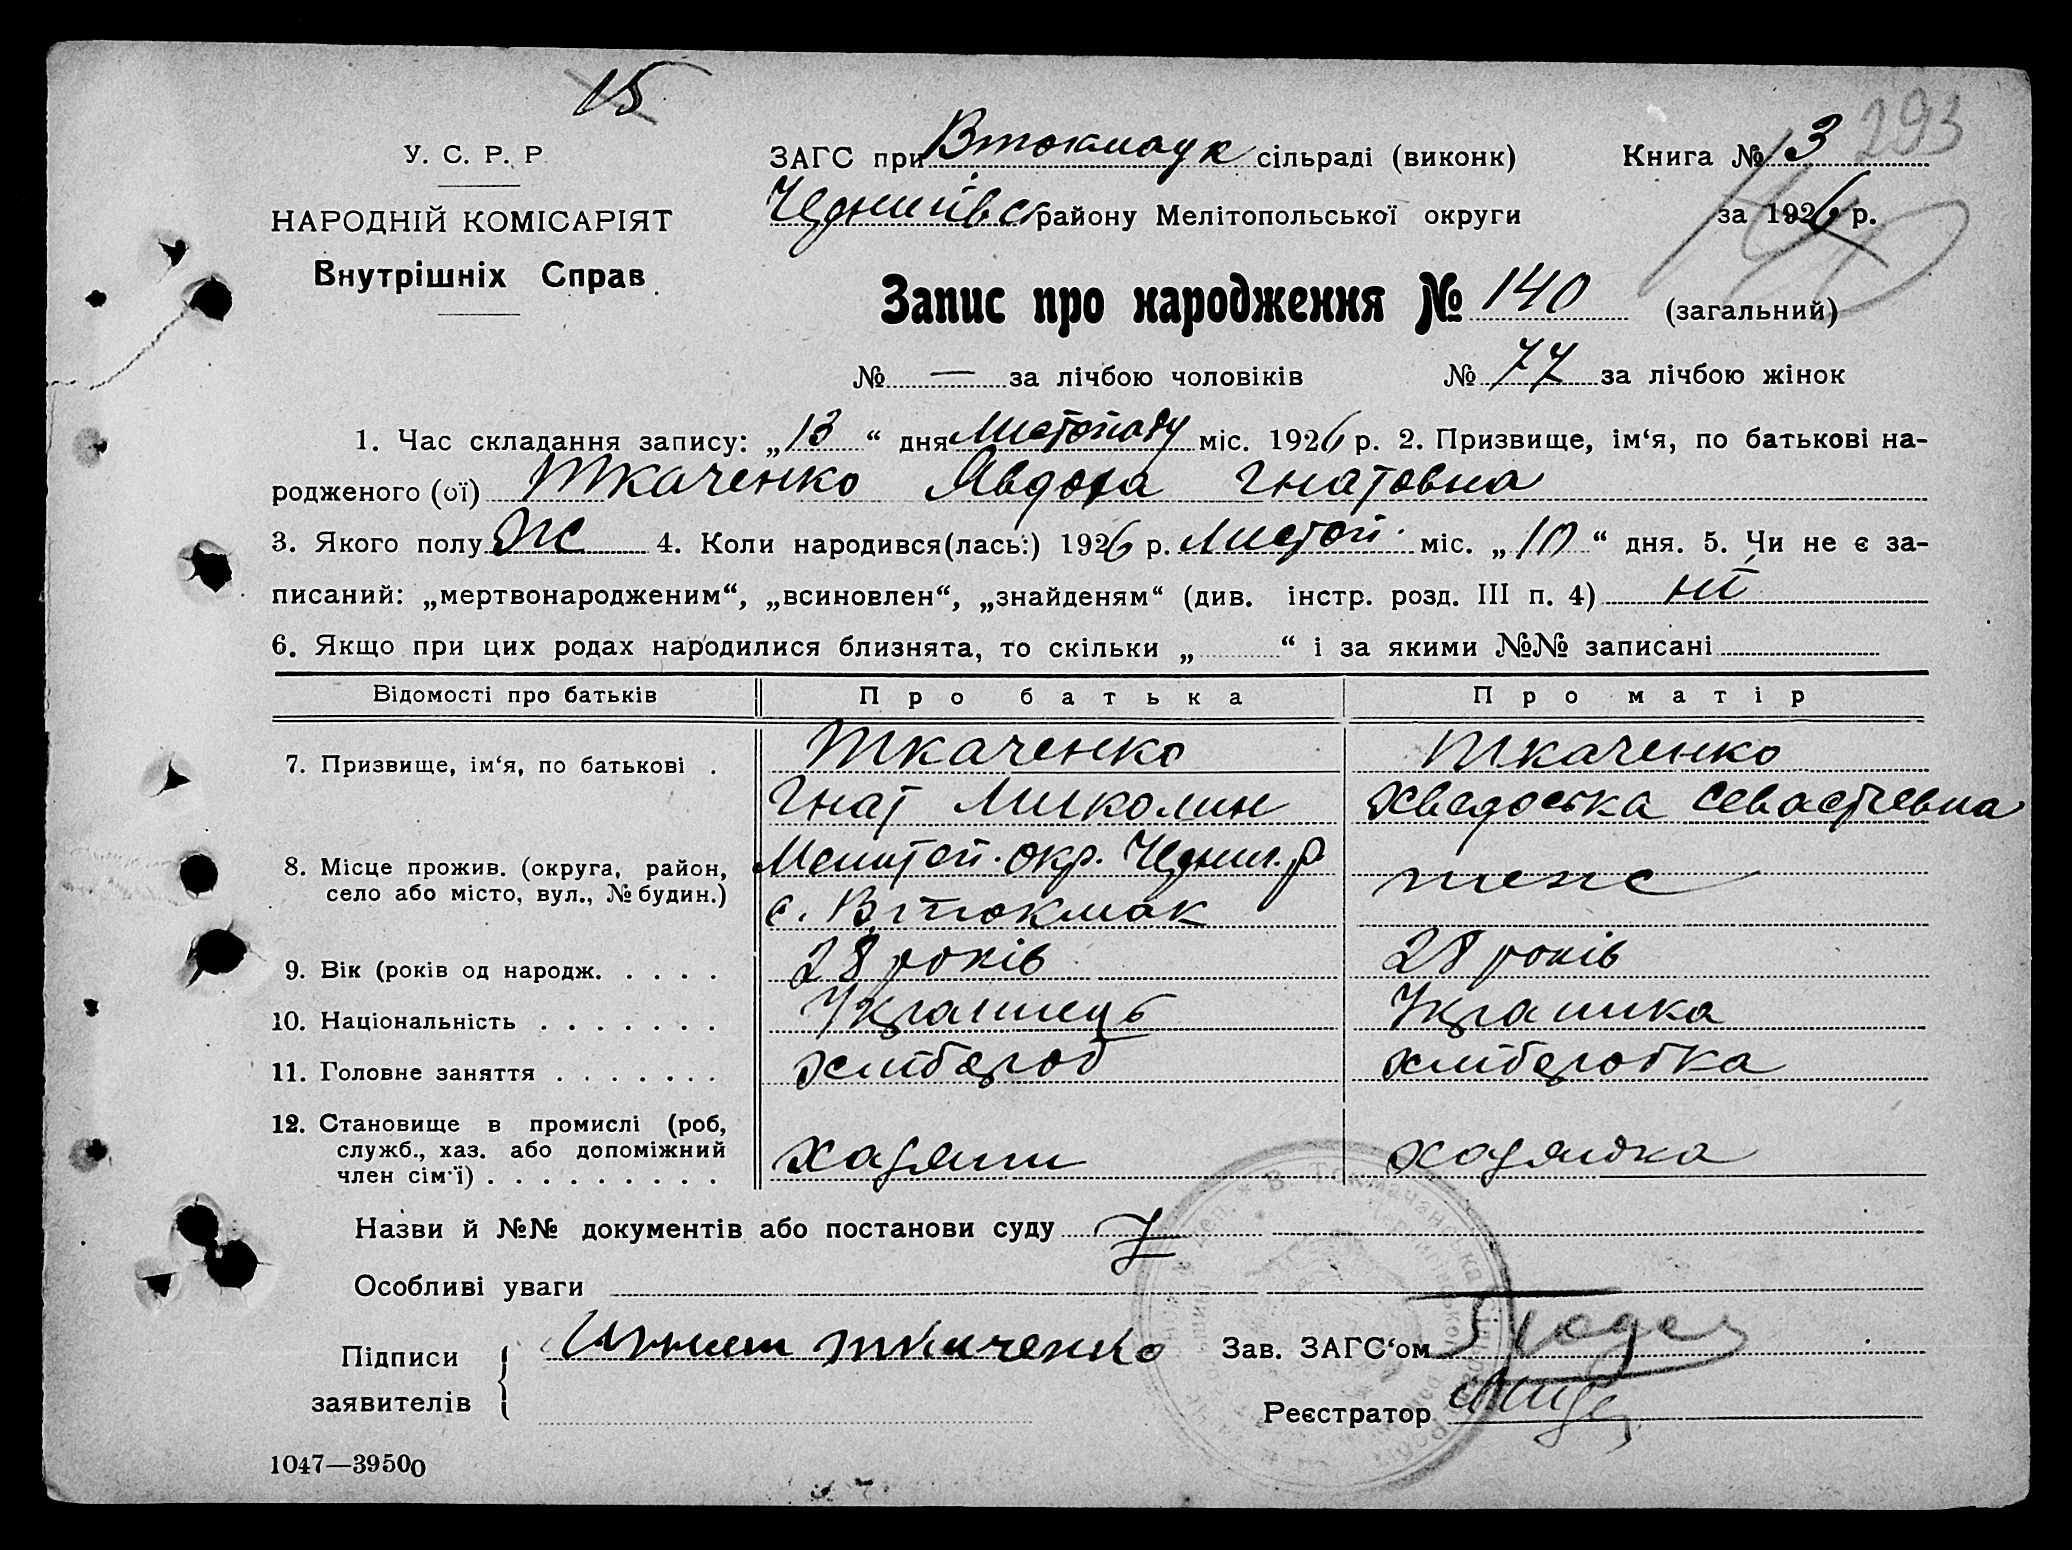 15
У. С. Р. Р
НАРОДНІЙ КОМІСАРІЯТ
Внутрішніх Справ
ЗАГС при Втокмаук сільраді (виконк)
Книга № 13 293
Чернигівс району Мелітопольської округи
за 1926 р.
140
Запис про народження № 140 (загальний)
№ — за лічбою чоловіків № 77 за лічбою жінок
1. Час складання запису: „13“ дня Листопаду міс. 1926 р. 2. Призвище, ім‘я, по батькові на-
родженого (ої) Ткаченко Явдоха Гнатовна
3. Якого полу Ж 4. Коли народився(лась:) 1926 р. Листоп. міс. „10“ дня. 5. Чи не є за-
писаний: „мертвонародженим“, „всиновлен“, „знайденям“ (див. інстр. розд. III п. 4) ні
6. Якщо при цих родах народилися близнята, то скільки „ “ і за якими №№ записані
Відомості про батьків Про батька Про матір
7. Призвище, ім‘я, по батькові . Ткаченко Ткаченко
Гнат Миколин Хведоська Севастіевна
8. Місце прожив. (округа, район, Мелитоп. окр. Черниг. р
село або місто, вул., № будин.) с. Втокмак теж
9. Вік (років од народж. . . . . 28 років 28 років
10. Національність . . . . . . . Українець Українка
11. Головне заняття . . . . . . . хлібороб хліборобка
12. Становище в промислі (роб,
служб., хаз. або допоміжний хазяин хазяйка
член сім‘ї) . . . . . . . . .
Назви й №№ документів або постанови суду
Особливі уваги
Підписи
заявителів
Игнат Ткаченко
Зав. ЗАГС‘ом
Реєстратор
1047—39500